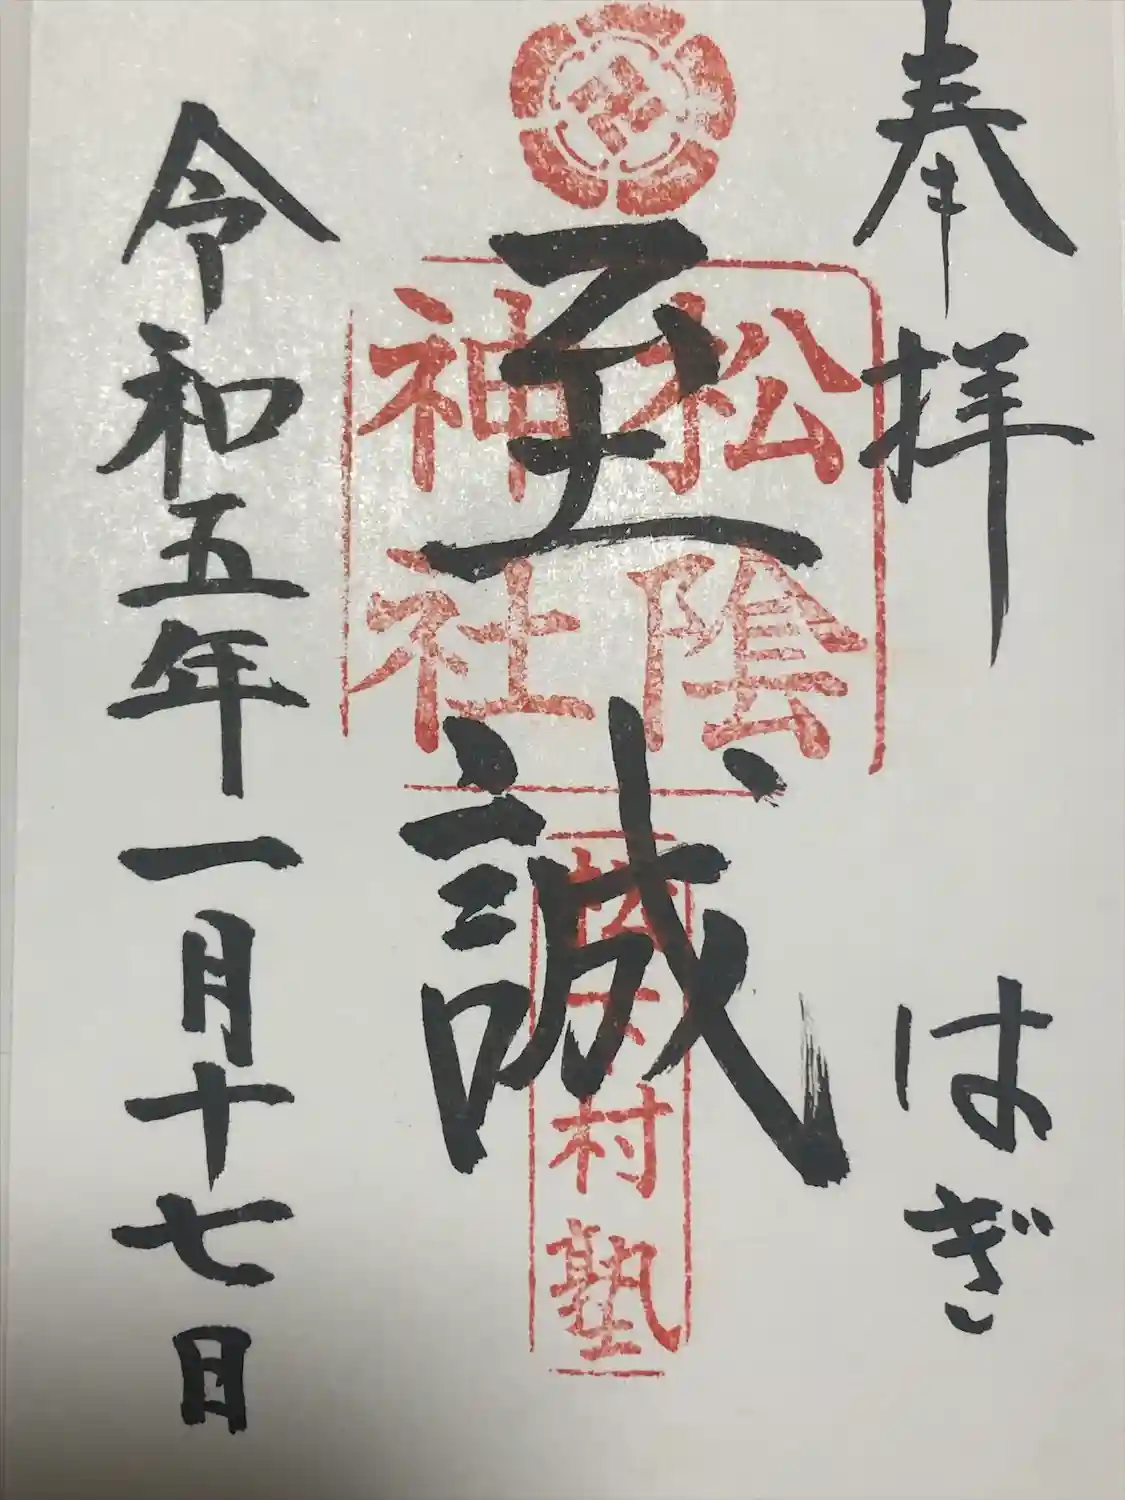 奉拝 はぎ
至誠
松陰
神社
松下村塾
令和五年一月十七日